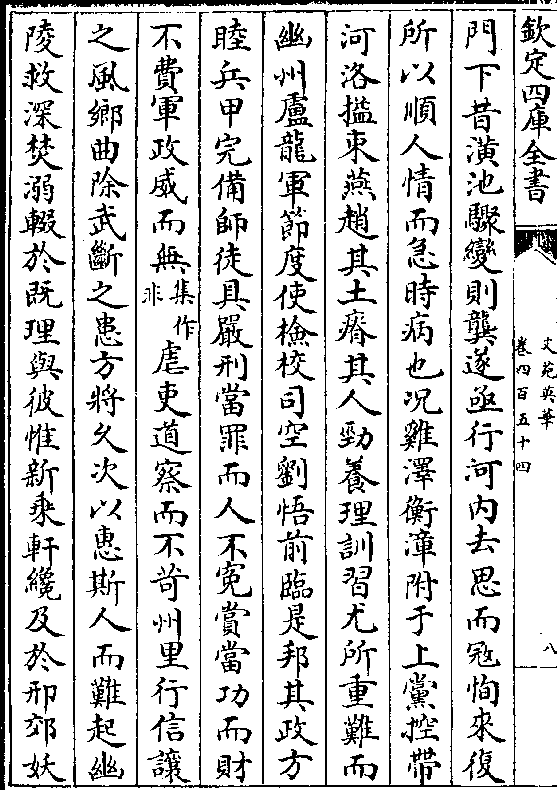 欽定四庫全書
文苑英華
卷四百五十四
八
門下昔潢池驟變則龔遂亟行河内去思而冦恂來復
所以順人情而急時病也况雞澤衡漳附于上黨控帶
河洛搤束燕趙其土瘠其人勁養理訓習尤所重難而
幽州盧龍軍節度使檢校司空劉悟前臨是邦其政方
睦兵甲完備師徒具嚴刑當罪而人不寃賞當功而財
不費軍政威而無集作非虐吏道察而不苛州里行信讓
之風鄉曲除武斷之患方將久次以惠斯人而難起幽
陵救深焚溺輟於既理與彼惟新乘軒纔及於邢郊妖